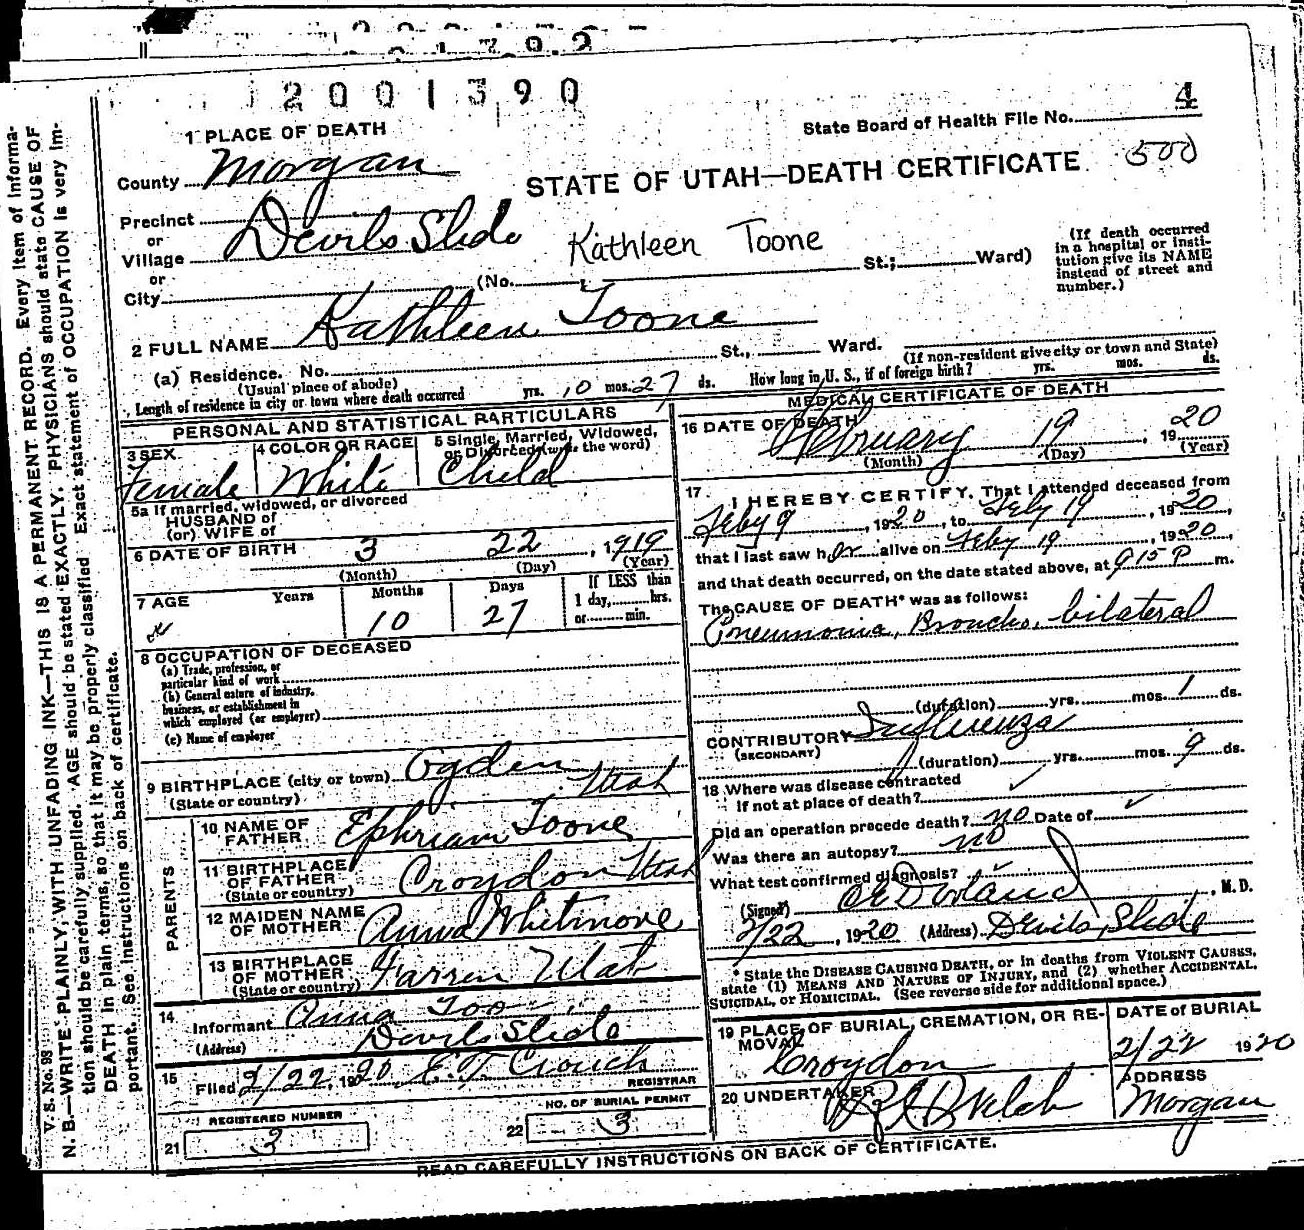 2001390
4
State Board of Health File No.
500
STATE OF UTAH—DEATH CERTIFICATE
1 PLACE OF DEATH
County Morgan
Precinct
or
Village Devils Slide
or
City
Kathleen Toone
(No. St.; Ward)
(If death occurred
in a hospital or insti-
tution give its NAME
instead of street and
number.)
2 FULL NAME Kathleen Toone
(a) Residence. No. St., Ward.
(Usual place of abode)
(If non-resident give city or town and State)
Length of residence in city or town where death occurred yrs. 10 mos. 27 ds. How long in U. S., if of foreign birth? yrs. mos. ds.
PERSONAL AND STATISTICAL PARTICULARS
3 SEX
Female
4 COLOR OR RACE
White
5 Single, Married, Widowed,
or Divorced (write the word)
Child
5a If married, widowed, or divorced
HUSBAND of
(or) WIFE of
6 DATE OF BIRTH 3 22, 1919
(Month) (Day) (Year)
7 AGE Years Months Days
10 27
If LESS than
1 day, hrs.
or min.
8 OCCUPATION OF DECEASED
(a) Trade, profession, or
particular kind of work
(b) General nature of industry,
business, or establishment in
which employed (or employer)
(c) Name of employer
9 BIRTHPLACE (city or town) Ogden
(State or country) Utah
PARENTS
10 NAME OF
FATHER Ephriam Toone
11 BIRTHPLACE
OF FATHER
(State or country) Croydon Utah
12 MAIDEN NAME
OF MOTHER Anna Whitmore
13 BIRTHPLACE
OF MOTHER
(State or country) Farren Utah
14
Informant Anna Too
(Address) Devils Slide
15
Filed 2/22, 1920, E. T. Crouch
REGISTRAR
REGISTERED NUMBER
21 3
NO. OF BURIAL PERMIT
22 3
MEDICAL CERTIFICATE OF DEATH
16 DATE OF DEATH
February 19, 1920
(Month) (Day) (Year)
17
I HEREBY CERTIFY, That I attended deceased from
Feby 9, 1920, to Feby 19, 1920,
that I last saw her alive on Feby 19, 1920,
and that death occurred, on the date stated above, at 915 P m.
The CAUSE OF DEATH* was as follows:
Pneumonia, Broncho, bilateral
(duration) yrs. mos. 1 ds.
CONTRIBUTORY Influenza
(SECONDARY)
(duration) yrs. mos. 9 ds.
18 Where was disease contracted
if not at place of death?
Did an operation precede death? no Date of
Was there an autopsy? no
What test confirmed diagnosis?
(Signed) , M. D.
2/22, 1920 (Address) Devils Slide
* State the DISEASE CAUSING DEATH, or in deaths from VIOLENT CAUSES,
state (1) MEANS AND NATURE OF INJURY, and (2) whether ACCIDENTAL,
SUICIDAL, or HOMICIDAL. (See reverse side for additional space.)
19 PLACE OF BURIAL, CREMATION, OR RE-
MOVAL
Croydon
DATE OF BURIAL
2/22 1920
20 UNDERTAKER
Welch
ADDRESS
Morgan
READ CAREFULLY INSTRUCTIONS ON BACK OF CERTIFICATE.
V. S. No. 98
N. B.—WRITE PLAINLY, WITH UNFADING INK—THIS IS A PERMANENT RECORD. Every item of informa-
tion should be carefully supplied. AGE should be stated EXACTLY. PHYSICIANS should state CAUSE OF
DEATH in plain terms, so that it may be properly classified Exact statement of OCCUPATION is very im-
portant. See instructions on back of certificate.